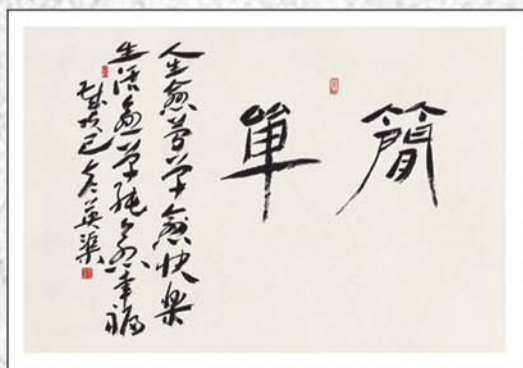 簡單
人生愈簡單愈快樂
生活愈單純愈幸福
歲癸巳冬英渠